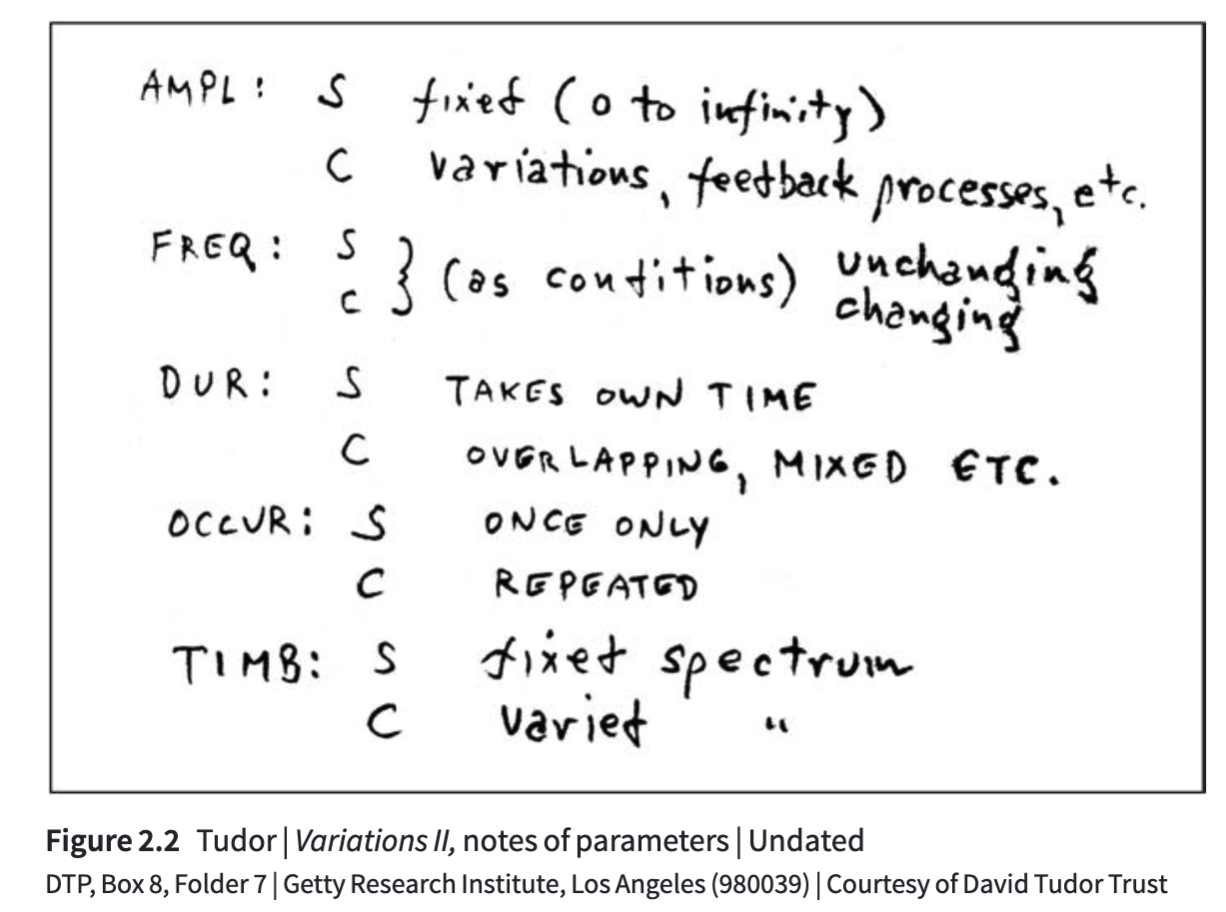 AMPL: S fixed (0 to infinity)
C variations, feedback processes, etc.
FREQ: S } (as conditions) unchanging
C changing
DUR: S TAKES OWN TIME
C OVERLAPPING, MIXED ETC.
OCCUR: S ONCE ONLY
C REPEATED
TIMB: S fixed spectrum
C varied "
Figure 2.2 Tudor | Variations II, notes of parameters | Undated
DTP, Box 8, Folder 7 | Getty Research Institute, Los Angeles (980039) | Courtesy of David Tudor Trust